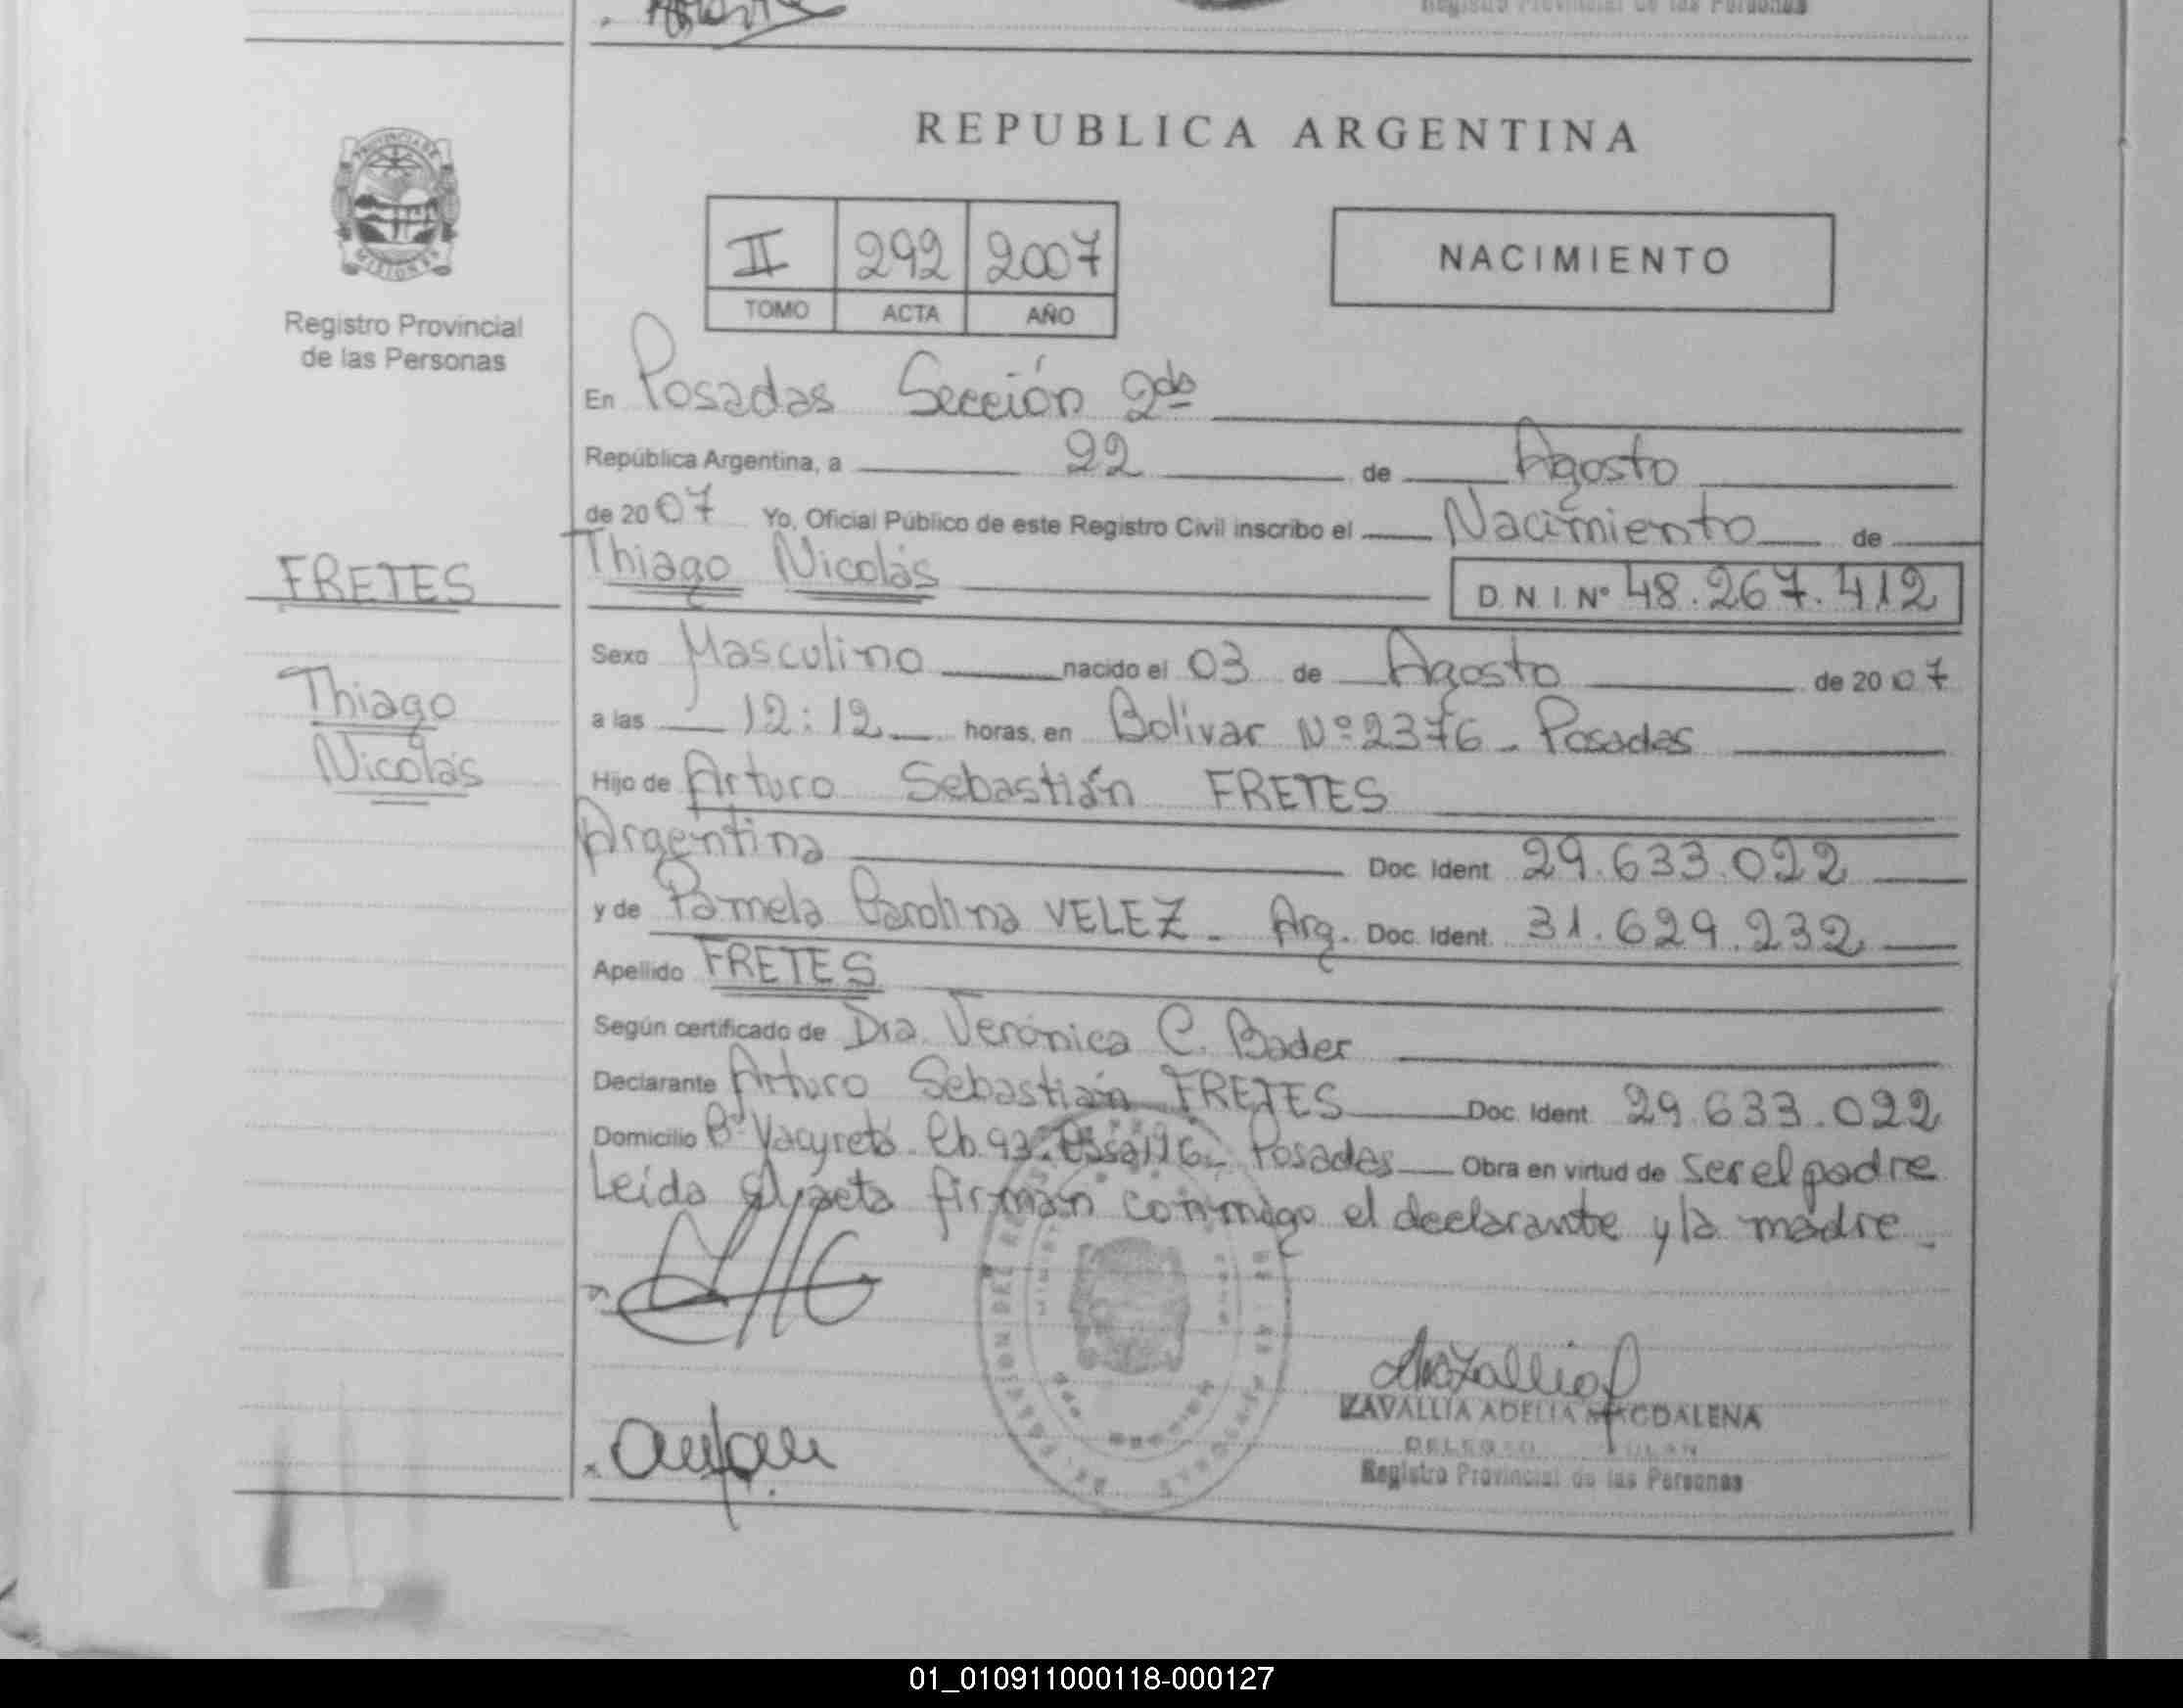 Registro Provincial de las Personas
REPUBLICA ARGENTINA
PROVINCIA DE
MISIONES
Registro Provincial
de las Personas
II 292 2007
TOMO ACTA AÑO
NACIMIENTO
En Posadas Sección 2da
República Argentina, a 22 de Agosto
de 2007 Yo, Oficial Público de este Registro Civil inscribo el Nacimiento de
FRETES
Thiago Nicolás
D.N.I. Nº 48.267.412
Thiago
Nicolás
Sexo Masculino nacido el 03 de Agosto de 2007
a las 12:12 horas, en Bolivar Nº 2376 - Posadas
Hijo de Arturo Sebastián FRETES
Argentina Doc. Ident. 29.633.022
y de Pamela Carolina VELEZ - Arg. Doc. Ident. 31.629.232
Apellido FRETES
Según certificado de Dra. Verónica C. Bader
Declarante Arturo Sebastián FRETES Doc. Ident. 29.633.022
Domicilio Bº Yacyretá Posadas Obra en virtud de ser el padre
Leída el acta firman conmigo el declarante y la madre -
ZAVALLIA ADELIA MAGDALENA
Registro Provincial de las Personas
01_010911000118-000127